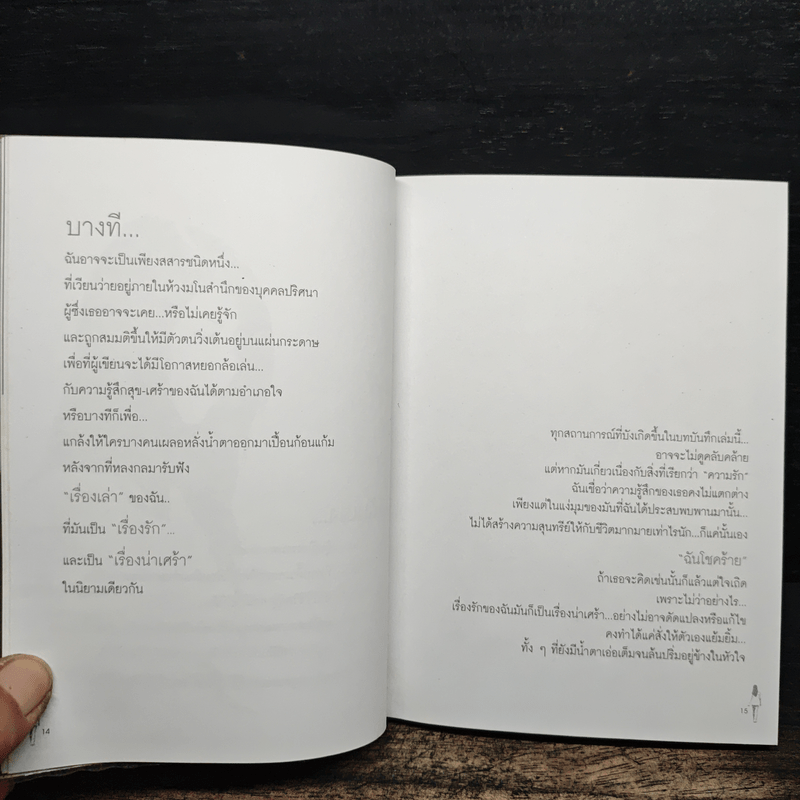 บางที...
ฉันอาจจะเป็นเพียงสสารชนิดหนึ่ง...
ที่เวียนว่ายอยู่ภายในห้วงมโนสำนึกของบุคคลปริศนา
ผู้ซึ่งเธออาจจะเคย...หรือไม่เคยรู้จัก
และถูกสมมติขึ้นให้มีตัวตนวิ่งเต้นอยู่บนแผ่นกระดาษ
เพื่อที่ผู้เขียนจะได้มีโอกาสหยอกล้อเล่น...
กับความรู้สึกสุข-เศร้าของฉันได้ตามอำเภอใจ
หรือบางทีก็เพื่อ...
แกล้งให้ใครบางคนเผลอหลั่งน้ำตาออกมาเปื้อนก้อนแก้ม
หลังจากที่หลงกลมารับฟัง
“เรื่องเล่า” ของฉัน..
ที่มันเป็น “เรื่องรัก”...
และเป็น “เรื่องน่าเศร้า”
ในนิยามเดียวกัน
14
ทุกสถานการณ์ที่บังเกิดขึ้นในบทบันทึกเล่มนี้...
อาจจะไม่ดูคลับคล้าย
แต่หากมันเกี่ยวเนื่องกับสิ่งที่เรียกว่า “ความรัก”
ฉันเชื่อว่าความรู้สึกของเธอคงไม่แตกต่าง
เพียงแต่ในแง่มุมของมันที่ฉันได้ประสบพบพานมานั้น...
ไม่ได้สร้างความสุนทรีย์ให้กับชีวิตมากมายเท่าไรนัก...ก็แค่นั้นเอง
“ฉันโชคร้าย”
ถ้าเธอจะคิดเช่นนั้นก็แล้วแต่ใจเถิด
เพราะไม่ว่าอย่างไร...
เรื่องรักของฉันมันก็เป็นเรื่องน่าเศร้า...อย่างไม่อาจดัดแปลงหรือแก้ไข
คงทำได้แค่สั่งให้ตัวเองแย้มยิ้ม...
ทั้ง ๆ ที่ยังมีน้ำตาเอ่อเต็มจนล้นปริ่มอยู่ข้างในหัวใจ
15